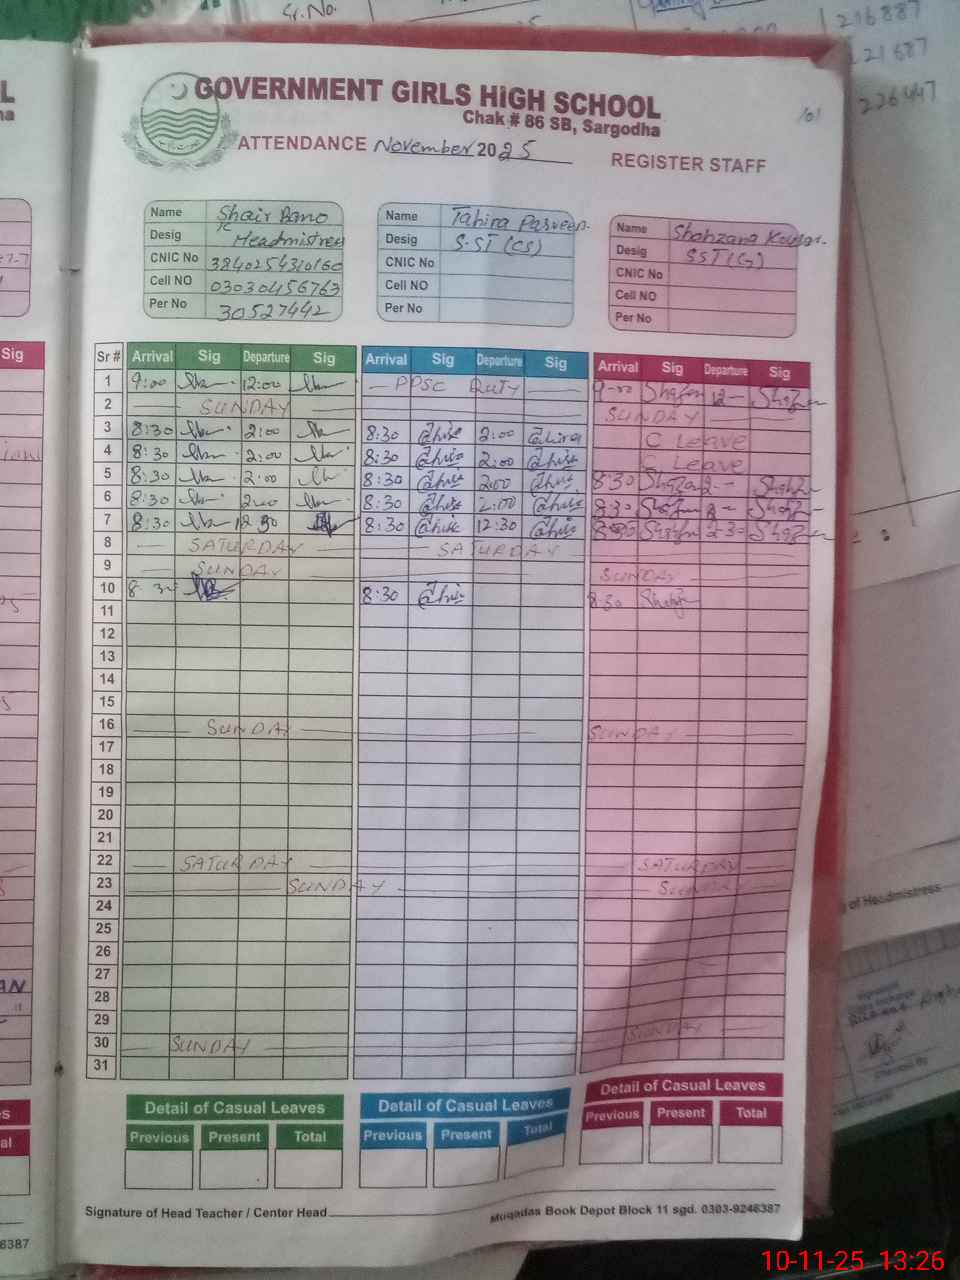 Sr.No.
216887
21687
226447
GOVERNMENT GIRLS HIGH SCHOOL
Chak # 86 SB, Sargodha
101
ATTENDANCE November 2025
REGISTER STAFF
Name Shair Bano
Desig Headmistress
CNIC No 3840254310160
Cell NO 03030456763
Per No 30527442
Name Tahira Parveen.
Desig S.ST (CS)
CNIC No
Cell NO
Per No
Name Shahzana Kousar.
Desig SST(G)
CNIC No
Cell NO
Per No
Sr # Arrival Sig Departure Sig Arrival Sig Departure Sig Arrival Sig Departure Sig
1 9:00 12:00 — PPSC DUTY — 9-00 12-
2 — SUNDAY — SUNDAY —
3 8:30 2:00 8:30 2:00 C Leave
4 8:30 2:00 8:30 2:00 C Leave
5 8:30 2:00 8:30 2:00 8:30 2-
6 8:30 2:00 8:30 2:00 8:30 2-
7 8:30 12:30 8:30 12:30 8:30
8 — SATURDAY — SATURDAY —
9 — SUNDAY — SUNDAY —
10 8:30 8:30 8:30
11
12
13
14
15
16 — SUNDAY — SUNDAY —
17
18
19
20
21
22 — SATURDAY — SATURDAY —
23 — SUNDAY — SUNDAY
24
25
26
27
28
29
30 — SUNDAY — SUNDAY
31
Detail of Casual Leaves
Previous Present Total
Detail of Casual Leaves
Previous Present Total
Detail of Casual Leaves
Previous Present Total
Signature of Head Teacher / Center Head
Muqadas Book Depot Block 11 sgd. 0303-9246387
of Headmistress
Sig
6387
10-11-25 13:26